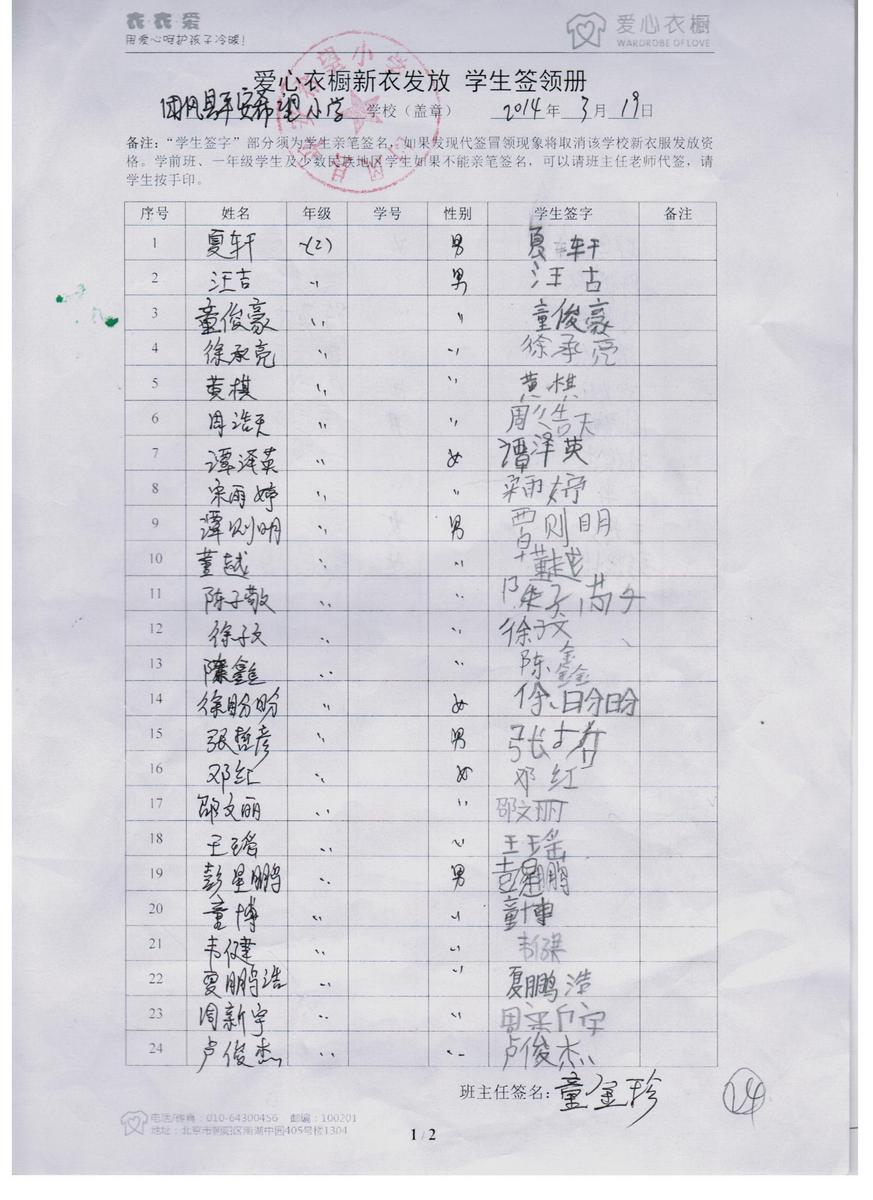 衣·衣·爱
用爱心呵护孩子冷暖!
爱心衣橱
WARDROBE OF LOVE
爱心衣橱新衣发放 学生签领册
团风县平安希望小学 学校（盖章） 2014年 3月 19日
备注：“学生签字”部分须为学生亲笔签名，如果发现代签冒领现象将取消该学校新衣服发放资
格。学前班、一年级学生及少数民族地区学生如果不能亲笔签名，可以请班主任老师代签，请
学生按手印。
序号 姓名 年级 学号 性别 学生签字 备注
1 夏轩 一(2) 男 夏轩
2 汪吉 〃 男 汪古
3 童俊豪 〃 〃 童俊豪
4 徐承亮 〃 〃 徐承亮
5 黄棋 〃 〃 黄棋
6 周浩天 〃 〃 周浩天
7 谭泽英 〃 女 谭泽英
8 宋雨婷 〃 〃 宋雨婷
9 谭则明 〃 男 覃则明
10 董越 〃 〃 董越
11 陈子敬 〃 〃
12 徐子文 〃 〃 徐子文
13 陈鑫 〃 〃 陈鑫
14 徐盼盼 〃 女 徐盼盼
15 张哲彦 〃 男 张
16 邓红 〃 女 邓红
17 邵文丽 〃 〃 邵文丽
18 王瑶 〃 〃 王瑶
19 彭星鹏 〃 男 彭星鹏
20 童博 〃 〃 童博
21 韦健 〃 〃 韦健
22 夏鹏浩 〃 〃 夏鹏浩
23 周新宇 〃 〃 周新宇
24 卢俊杰 〃 〃 卢俊杰
班主任签名：童金珍
24
电话/传真：010-64300456 邮编：100201
地址：北京市朝阳区南湖中园405号楼1304
1 / 2